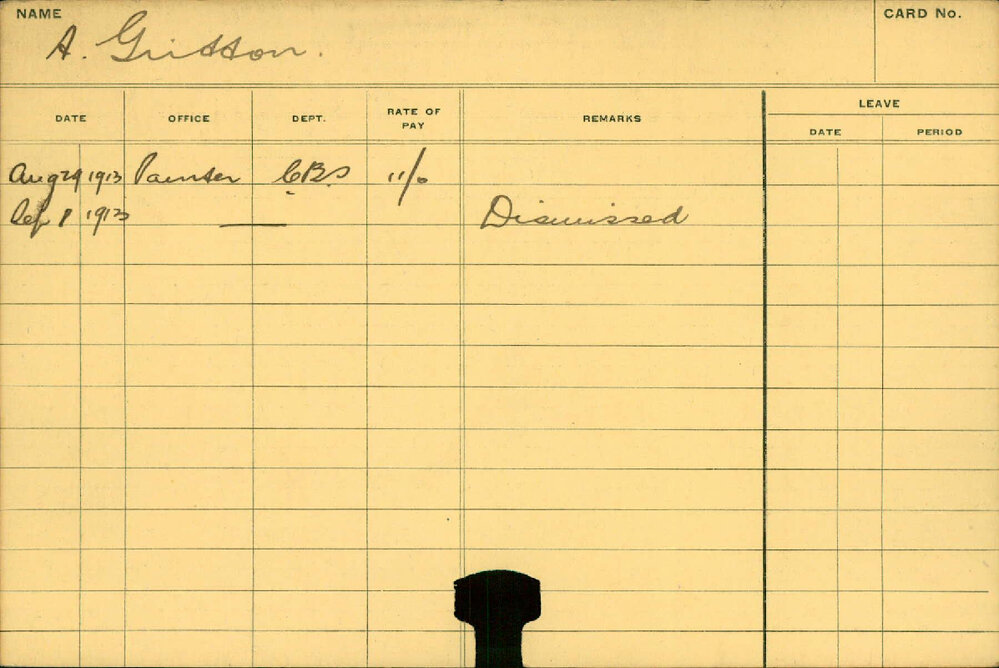 NAME
CARD No.
A. Gritton.
DATE OFFICE DEPT. RATE OF PAY REMARKS LEAVE
DATE PERIOD
Aug 29 1913 Painter CBS 11/0
Sep 1 1913 — Dismissed